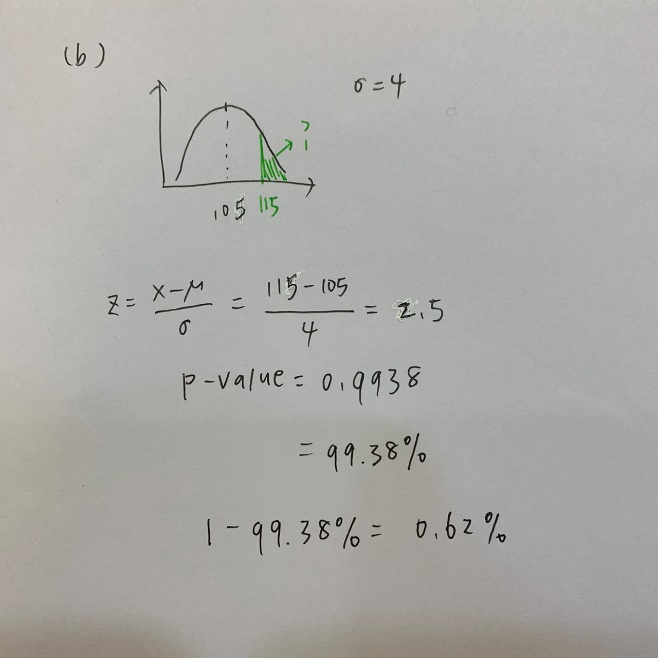 (b)
σ = 4
?
105 115
z = x-μ / σ = 115-105 / 4 = 2.5
p-value = 0.9938
= 99.38%
1 - 99.38% = 0.62%